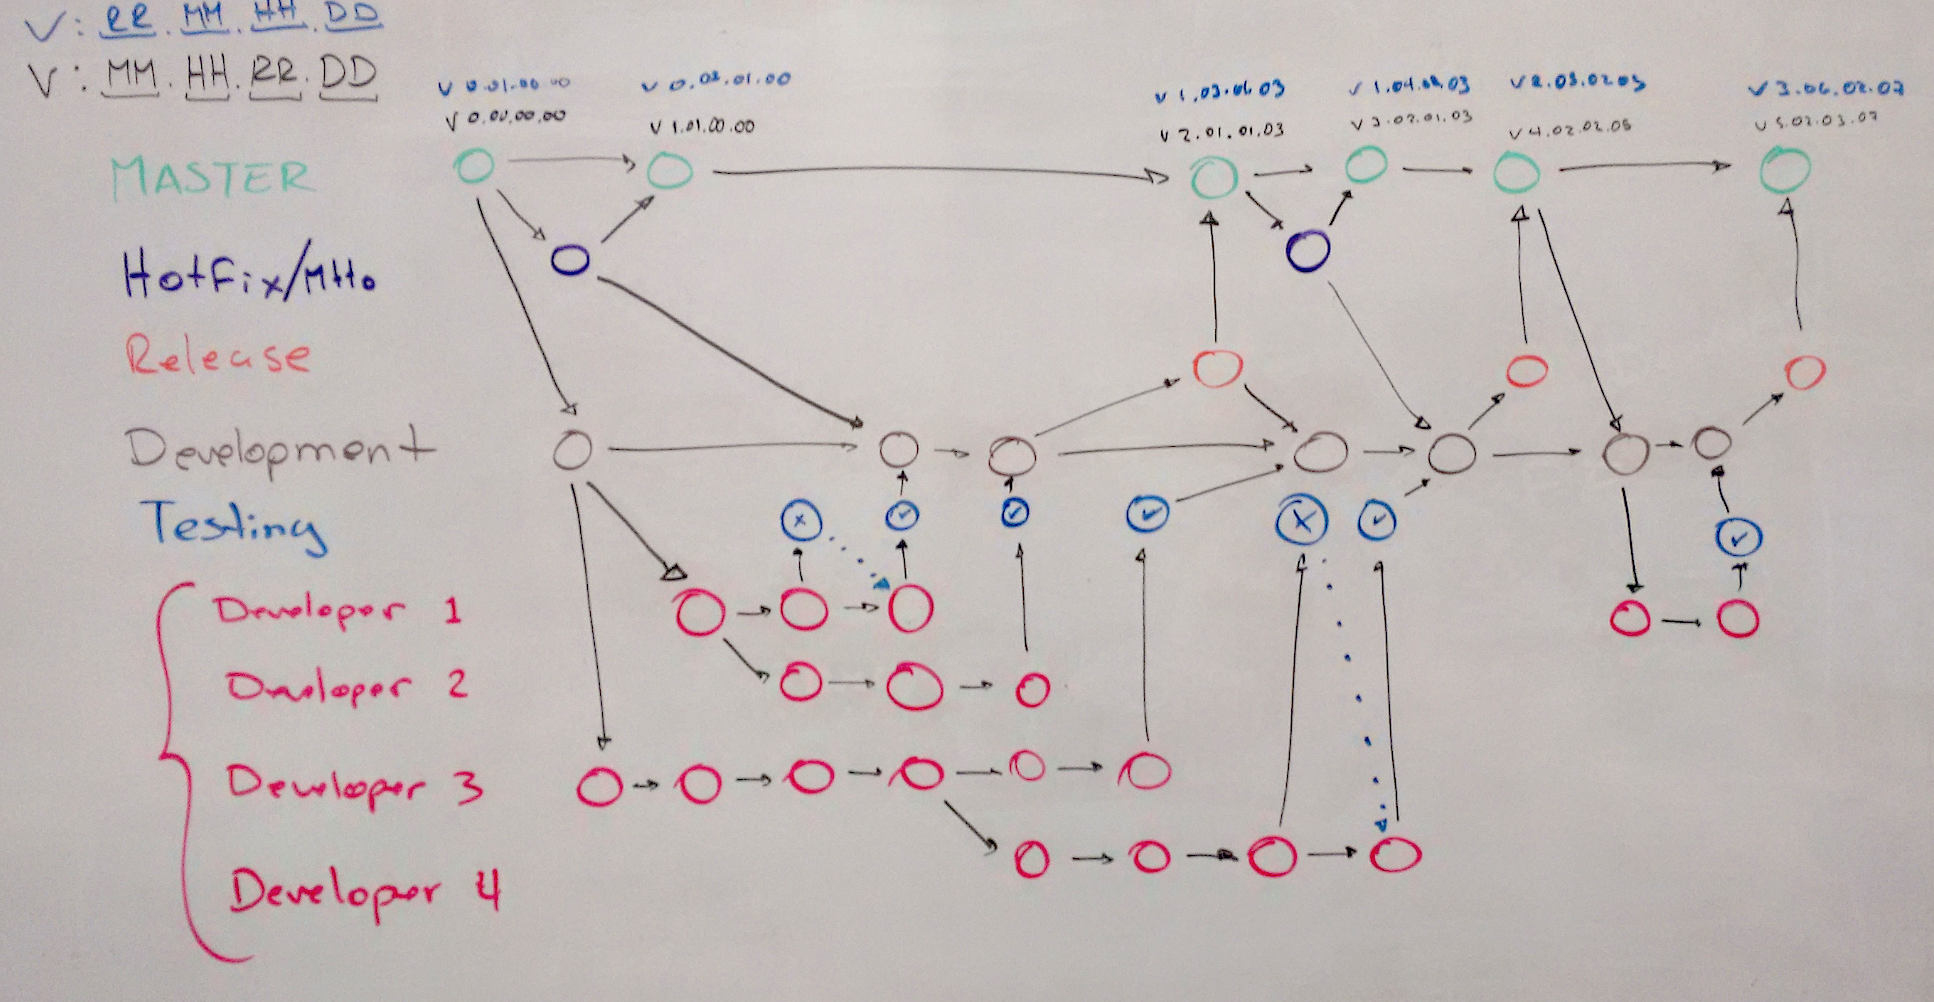 V: RR.MM.HH.DD
V: MM.HH.RR.DD
V 0.01.00.00
V 0.02.01.00
V 1.03.01.03
V 1.04.02.03
V 2.05.02.05
V 3.06.02.07
V 0.00.00.00
V 1.01.00.00
V 2.01.01.03
V 3.02.01.03
V 4.02.02.05
V 5.02.03.07
MASTER
HotFix/MHo
Release
Development
Testing
Developer 1
Developer 2
Developer 3
Developer 4